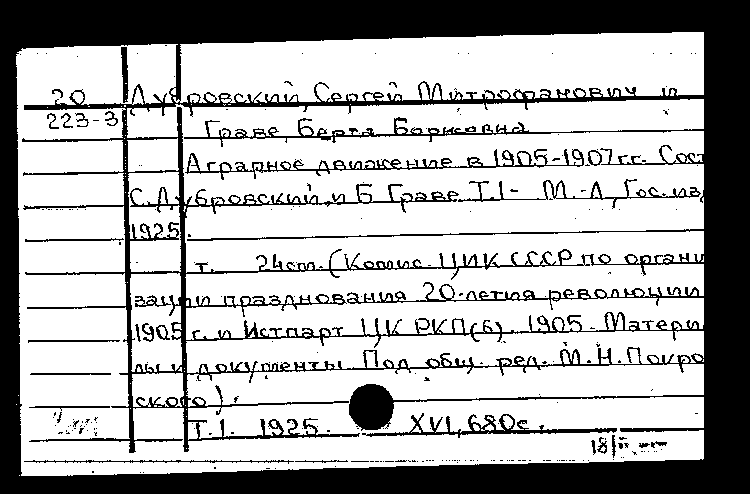 20 Дубровский, Сергей Митрофанович и
223-3 Граве, Берта Борисовна
Аграрное движение в 1905-1907 г.г. Сост
С. Дубровский и Б Граве Т.1- М.-Л, Гос. из
1925.
т. 24 см. (Комис. ЦИК СССР по органи
зации празднования 20-летия революции
1905 г. и Истпарт ЦК РКП(б). 1905. Матери
лы и документы Под общ. ред. М.Н. Покро
ского).
Т.1. 1925. XVI, 680с.
18/II